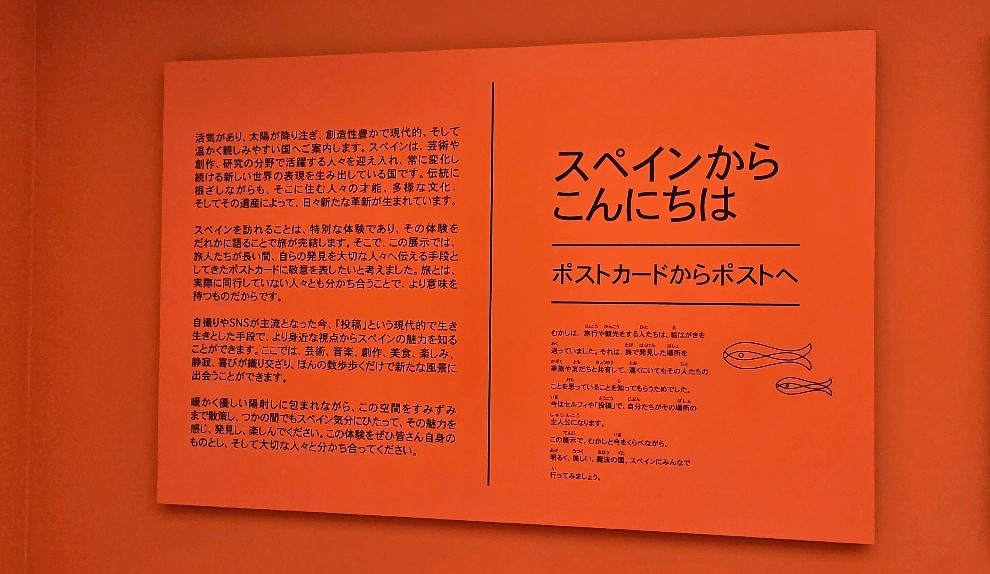 活気があり、太陽が降り注ぎ、創造性豊かで現代的、そして
温かく親しみやすい国へご案内します。スペインは、芸術や
創作、研究の分野で活躍する人々を迎え入れ、常に変化し
続ける新しい世界の表現を生み出している国です。伝統に
根ざしながらも、そこに住む人々の才能、多様な文化、
そしてその遺産によって、日々新たな革新が生まれています。
スペインを訪れることは、特別な体験であり、その体験を
だれかに語ることで旅が完結します。そこで、この展示では、
旅人たちが長い間、自らの発見を大切な人々へ伝える手段と
してきたポストカードに敬意を表したいと考えました。旅とは、
実際に同行していない人々とも分かち合うことで、より意味を
持つものだからです。
自撮りやSNSが主流となった今、「投稿」という現代的で生き
生きとした手段で、より身近な視点からスペインの魅力を知る
ことができます。ここでは、芸術、音楽、創作、美食、楽しみ、
静寂、喜びが織り交ざり、ほんの数歩歩くだけで新たな風景に
出会うことができます。
暖かく優しい陽射しに包まれながら、この空間をすみずみ
まで散策し、つかの間でもスペイン気分にひたって、その魅力を
感じ、発見し、楽しんでください。この体験をぜひ皆さん自身の
ものとし、そして大切な人々と分かち合ってください。
スペインから
こんにちは
ポストカードからポストへ
りょこう かんこう ひと え
むかしは、旅行や観光をする人たちは、絵はがきを
おく たび はっけん ばしょ
送っていました。それは、旅で発見した場所を
かぞく とも きょうゆう とお
家族や友だちと共有して、遠くにいてもその人たちの
おも し
ことを思っていることを知ってもらうためでした。
いま とうこう じぶん ばしょ
今はセルフィや「投稿」で、自分たちがその場所の
しゅじんこう
主人公になります。
てんじ いま
この展示で、むかしと今をくらべながら、
あか うつく まほう くに
明るく、美しい、魔法の国、スペインにみんなで
い
行ってみましょう。